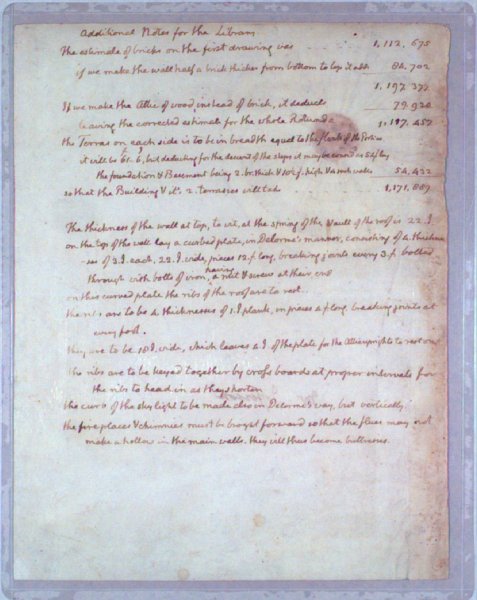 Additional Notes for the Library
The estimate of bricks on the first drawing was 1,112,675
if we make the wall half a brick thicker from bottom to top it adds 84,702
1,197,377
If we make the Attic of wood, instead of brick, it deducts 79,920
leaving the corrected estimate for the whole Rotunda 1,117,457
the Terras on each side is to be in breadth equal to the flank of the Portico
it will be but deducting for the descent of the steps it may be count as f. by
the foundation & Basement being 2. br. thick & 10½ f. high & walls 54,432
so that the Building & it's 2. terrasses will take 1,171,889
The thickness of the wall at top, to wit, at the spring of the Vault of the roof is 22. I.
on the top of the wall lay a curbed plate, in Delorme's manner, consisting of 4. thickness
-es of 3. I. each, 22. I. wide, pieces 12. f. long, breaking joints every 3. f. bolted
through with bolts of iron, having a nut & screw at their end
on this curved plate the ribs of the roof are to rest.
the ribs are to be 4 thicknesses of 1. I. plank, in pieces 4 f. long, breaking joints at
every foot.
they are to be 18 I. wide, which leaves 4 I. of the plate for the Attic uprights to rest on.
the ribs are to be keyed together by cross boards at proper intervals for
the ribs to head in as they shorten
the curb of the sky light to be made also in Delorme's way, but vertically.
the fire places & chimnies must be brought forward so that the flues may not
make a hollow in the main walls. they will thus become buttresses.